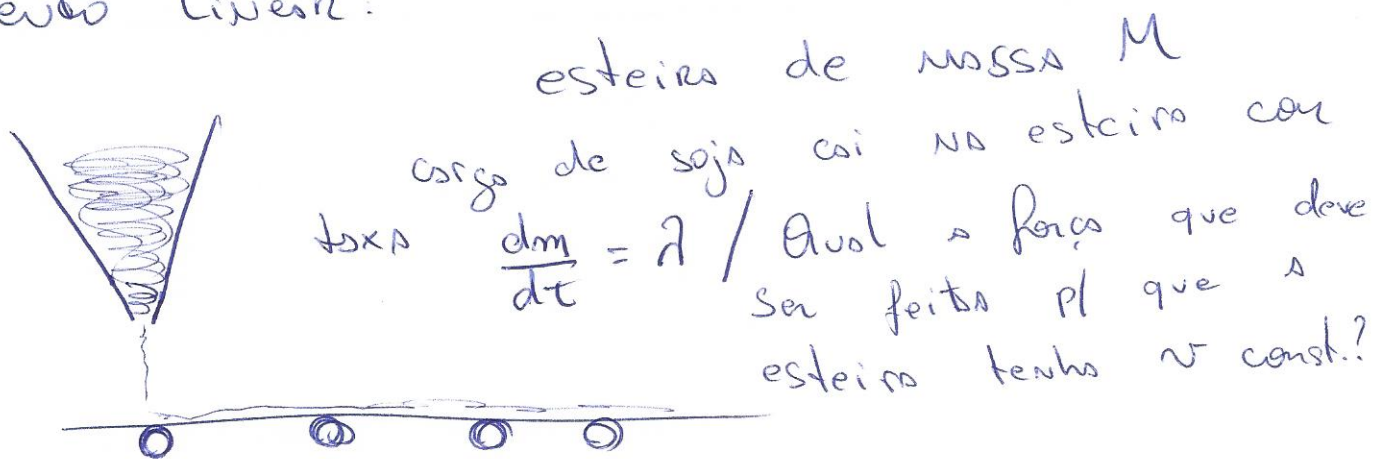 Linear.
esteira de massa M
carga de soja cai na esteira com
taxa dm/dt = λ / Qual a força que deve
ser feita p/ que a
esteira tenha v const.?